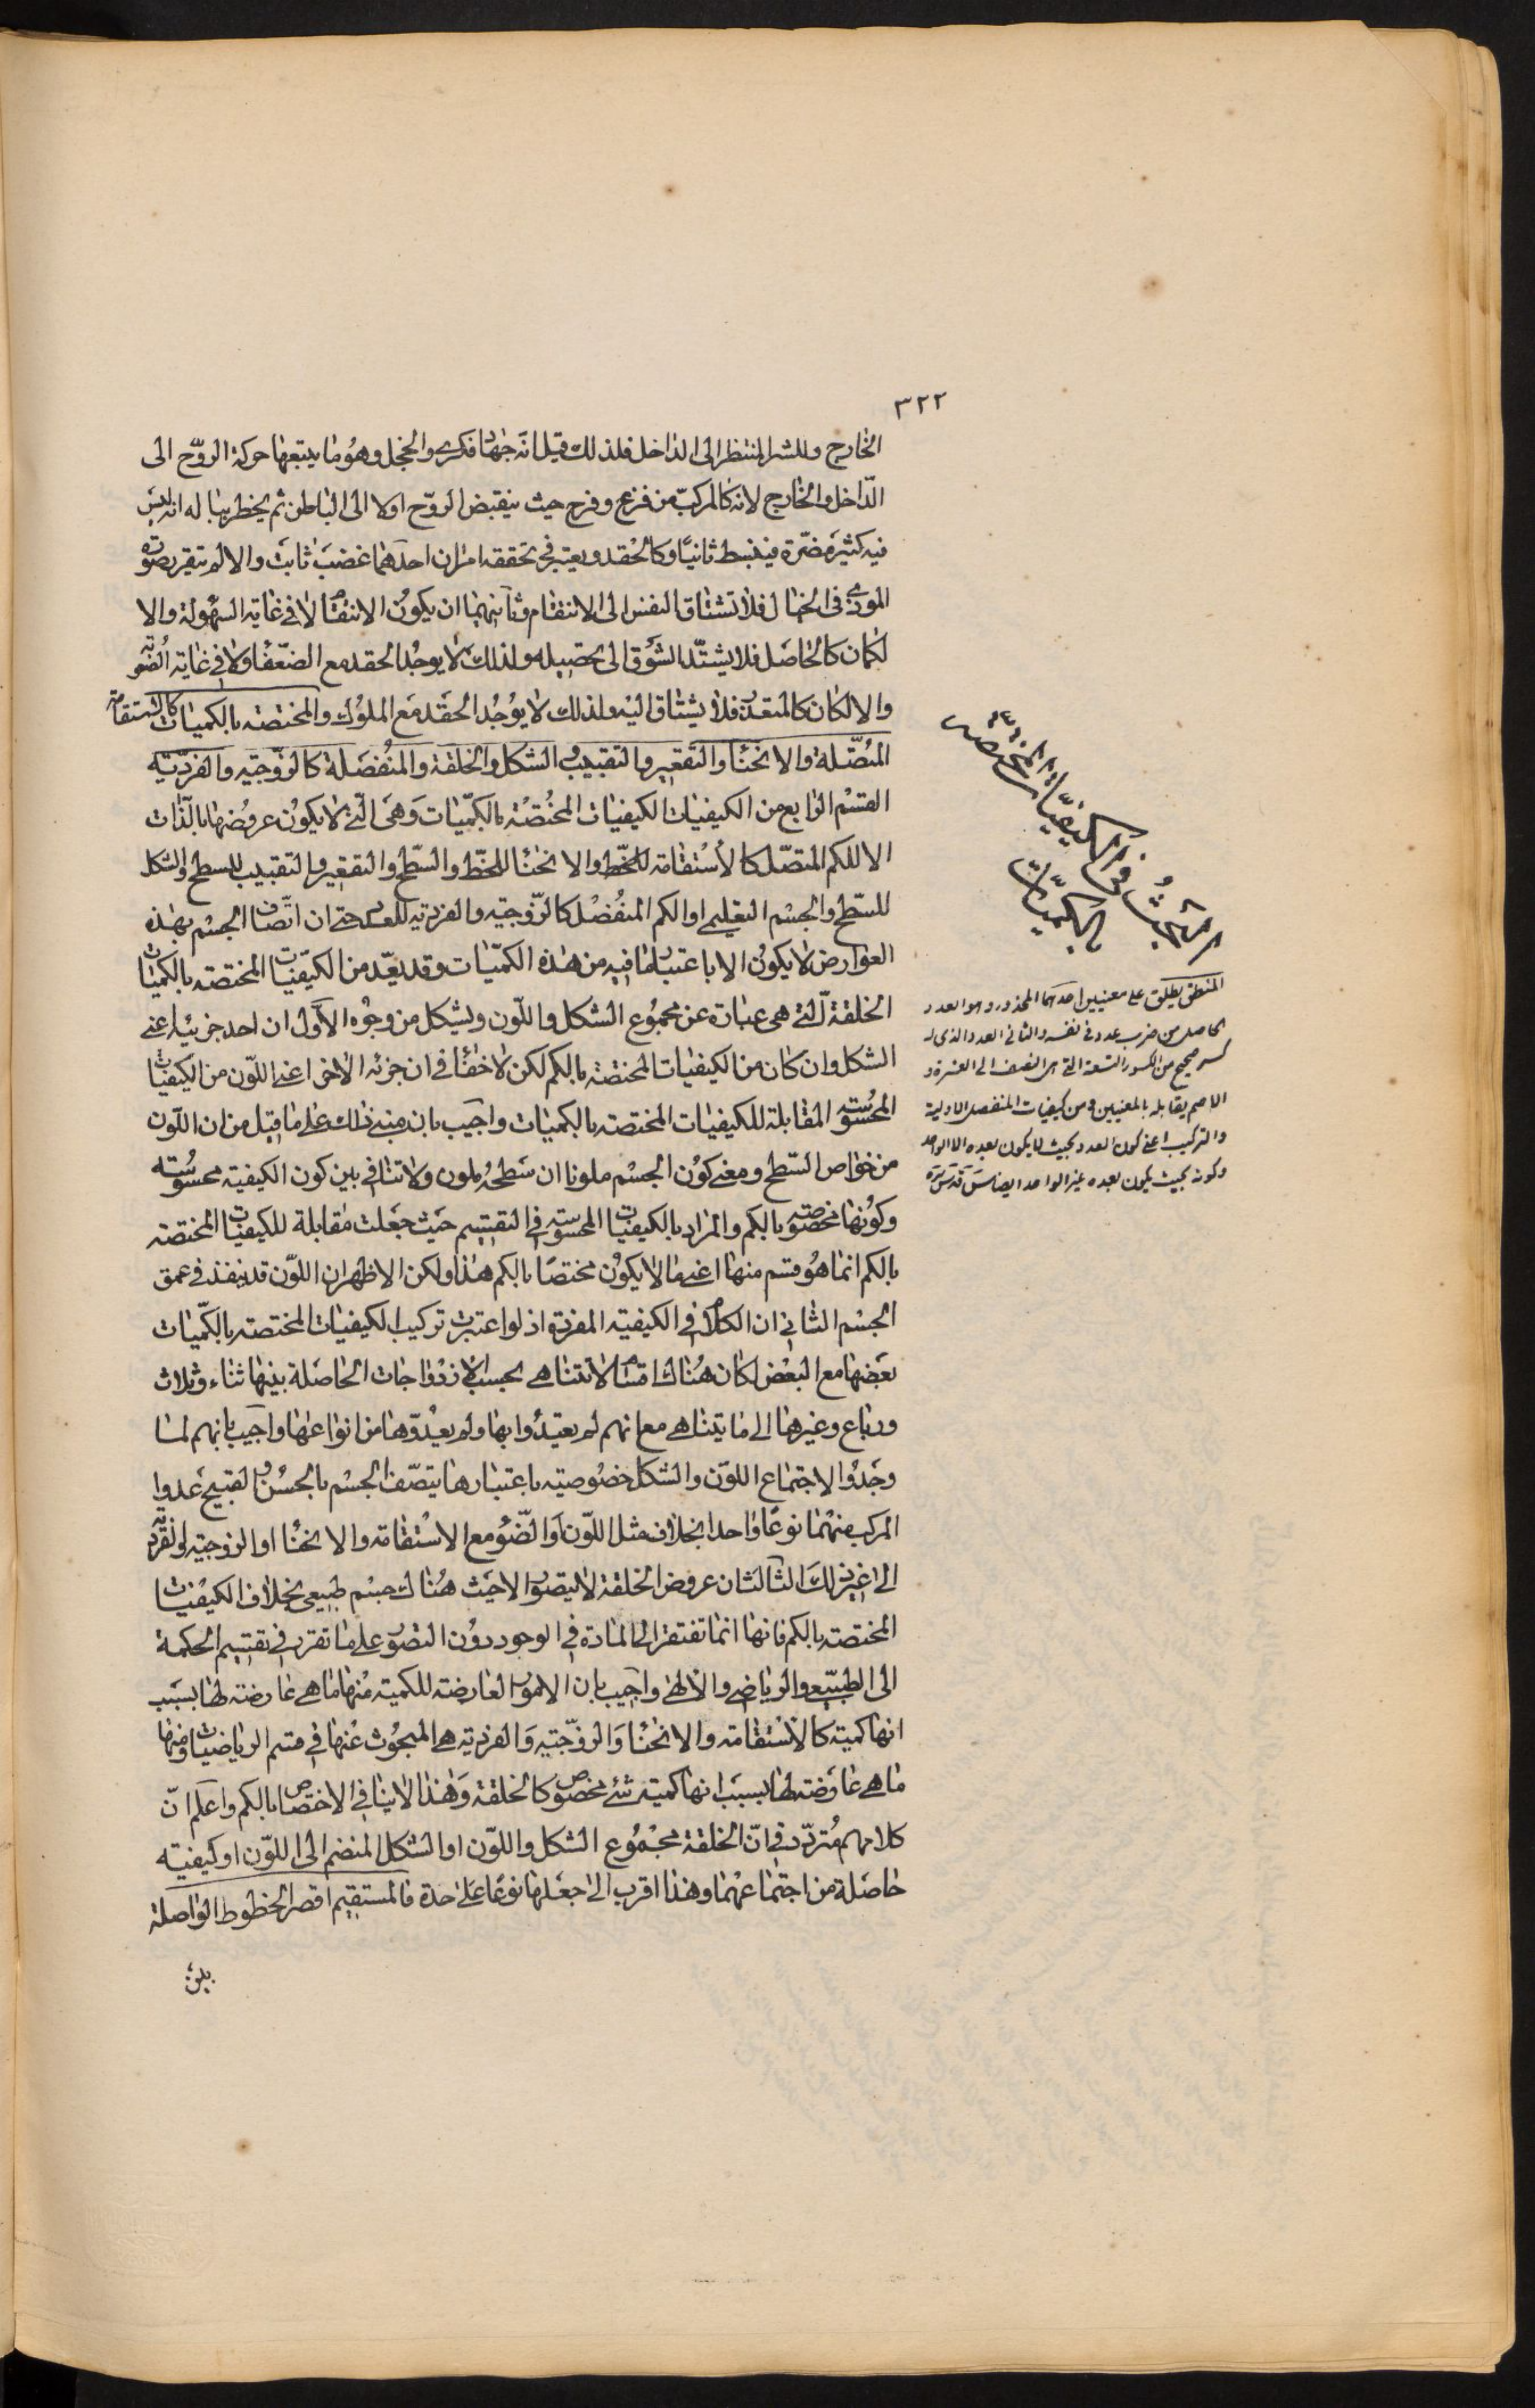 ٣٢٢
الخارج وللشر المنتظر الى الداخل فلذلك قيل انه جهاد فكرى والخجل وهو ما يتبعها حركة الروح الى
الداخل والخارج لانه كالمركب من فزع وفرح حيث ينقبض الروح اولا الى الباطن ثم يخطر بباله انه ليس
فيه كثير مضرة فينبسط ثانيا وكالحقد ويعتبر فى تحققه امران احدهما غضب ثابت والا لم تتقرر صورة
الموذى فى الخيال فلا تشتاق النفس الى الانتقام وثانيهما ان يكون الانتقام لا فى غاية السهولة والا
لكان كالحاصل فلا يشتد الشوق الى تحصيله ولذلك لا يوجد الحقد مع الضعفا ولا فى غاية الصعوبة
والا لكان كالمتعذر فلا يشتاق اليه ولذلك لا يوجد الحقد مع الملوك والمختصة بالكميات كالاستقامة
المتصلة والانحنا والتقعير والتقبيب والشكل والخلقة والمنفصلة كالزوجية والفردية
القسم الرابع من الكيفيات الكيفيات المختصة بالكميات وهى التى لا يكون عروضها بالذات
الا للكم المتصل كالاستقامة للخط والانحنا للخط والسطح والتقعير والتقبيب للسطح والشكل
للسطح والجسم التعليمى او الكم المنفصل كالزوجية والفردية للعدد حتى ان اتصاف الجسم بهذه
العوارض لا يكون الا باعتبار ما فيه من هذه الكميات وقد يعد من الكيفيات المختصة بالكميات
الخلقة التى هى عبارة عن مجموع الشكل واللون ويشكل من وجوه الاول ان احد جزئيه اعنى
الشكل وان كان من الكيفيات المختصة بالكم لكن لا خفا فى ان جزئه الاخر اعنى اللون من الكيفيات
المحسوسة المقابلة للكيفيات المختصة بالكميات واجيب بان مبنى ذلك على ما قيل من ان اللون
من خواص السطح ومعنى كون الجسم ملونا ان سطحه ملون ولا تنافى بين كون الكيفية محسوسة
وكونها مخصوصة بالكم والمراد بالكيفيات المحسوسة فى التقسيم حيث جعلت مقابلة للكيفيات المختصة
بالكم انما هو قسم منها اعنى ما لا يكون مختصا بالكم هذا ولكن الاظهر ان اللون قد ينفذ فى عمق
الجسم الثانى ان الكلام فى الكيفية المفردة اذ لو اعتبرت تركيب الكيفيات المختصة بالكميات
بعضها مع البعض لكان هناك اقسام لا تتناهى بحسب الازدواجات الحاصلة بينها ثناء وثلاث
ورباع وغيرها الى ما يتناهى مع انهم لم يعتدوا بها ولم يعدوها من انواعها واجيب بانهم لما
وجدوا لاجتماع اللون والشكل خصوصية باعتبارها يتصف الجسم بالحسن والقبيح عدوا
المركب منهما نوعا واحدا بخلاف مثل اللون او الضوء مع الاستقامة والانحنا او الزوجية او الفردية
الى غير ذلك الثالث ان عروض الخلقة لا يتصور الا حيث هناك جسم طبيعى بخلاف الكيفيات
المختصة بالكم فانها انما تفتقر الى المادة فى الوجود دون التصور على ما تقرر فى تقسيم الحكمة
الى الطبيعى والرياضى والالهى واجيب بان الامور العارضة للكمية منها ما هى عارضة لها بسبب
انها كمية كالاستقامة والانحنا والزوجية والفردية هى المبحوث عنها فى قسم الرياضيات ومنها
ما هى عارضة لها بسبب انها كمية شئ مخصوص كالخلقة وهذا لا ينافى الاختصاص بالكم واعلم ان
كلامهم متردد فى ان الخلقة مجموع الشكل واللون او الشكل المنضم الى اللون او كيفية
حاصلة من اجتماعهما وهذا اقرب الى جعلها نوعا على حدة فالمستقيم اقصر الخطوط الواصلة
بين
المبحث فى الكيفيات المختصة
بالكميات
المنطق يطلق على معنيين احدهما المجذور وهو العدد
الحاصل من ضرب عدد فى نفسه والثانى العدد الذى له
كسر صحيح من الكسور التسعة التى هى النصف الى العشرة و
الاصم يقابله بالمعنيين ومن كيفيات المنفصل الاولية
والتركيب اعنى كون العدد بحيث لا يكون يعده الا الواحد
وكونه بحيث يكون يعده غير الواحد ايضا س قدس سره